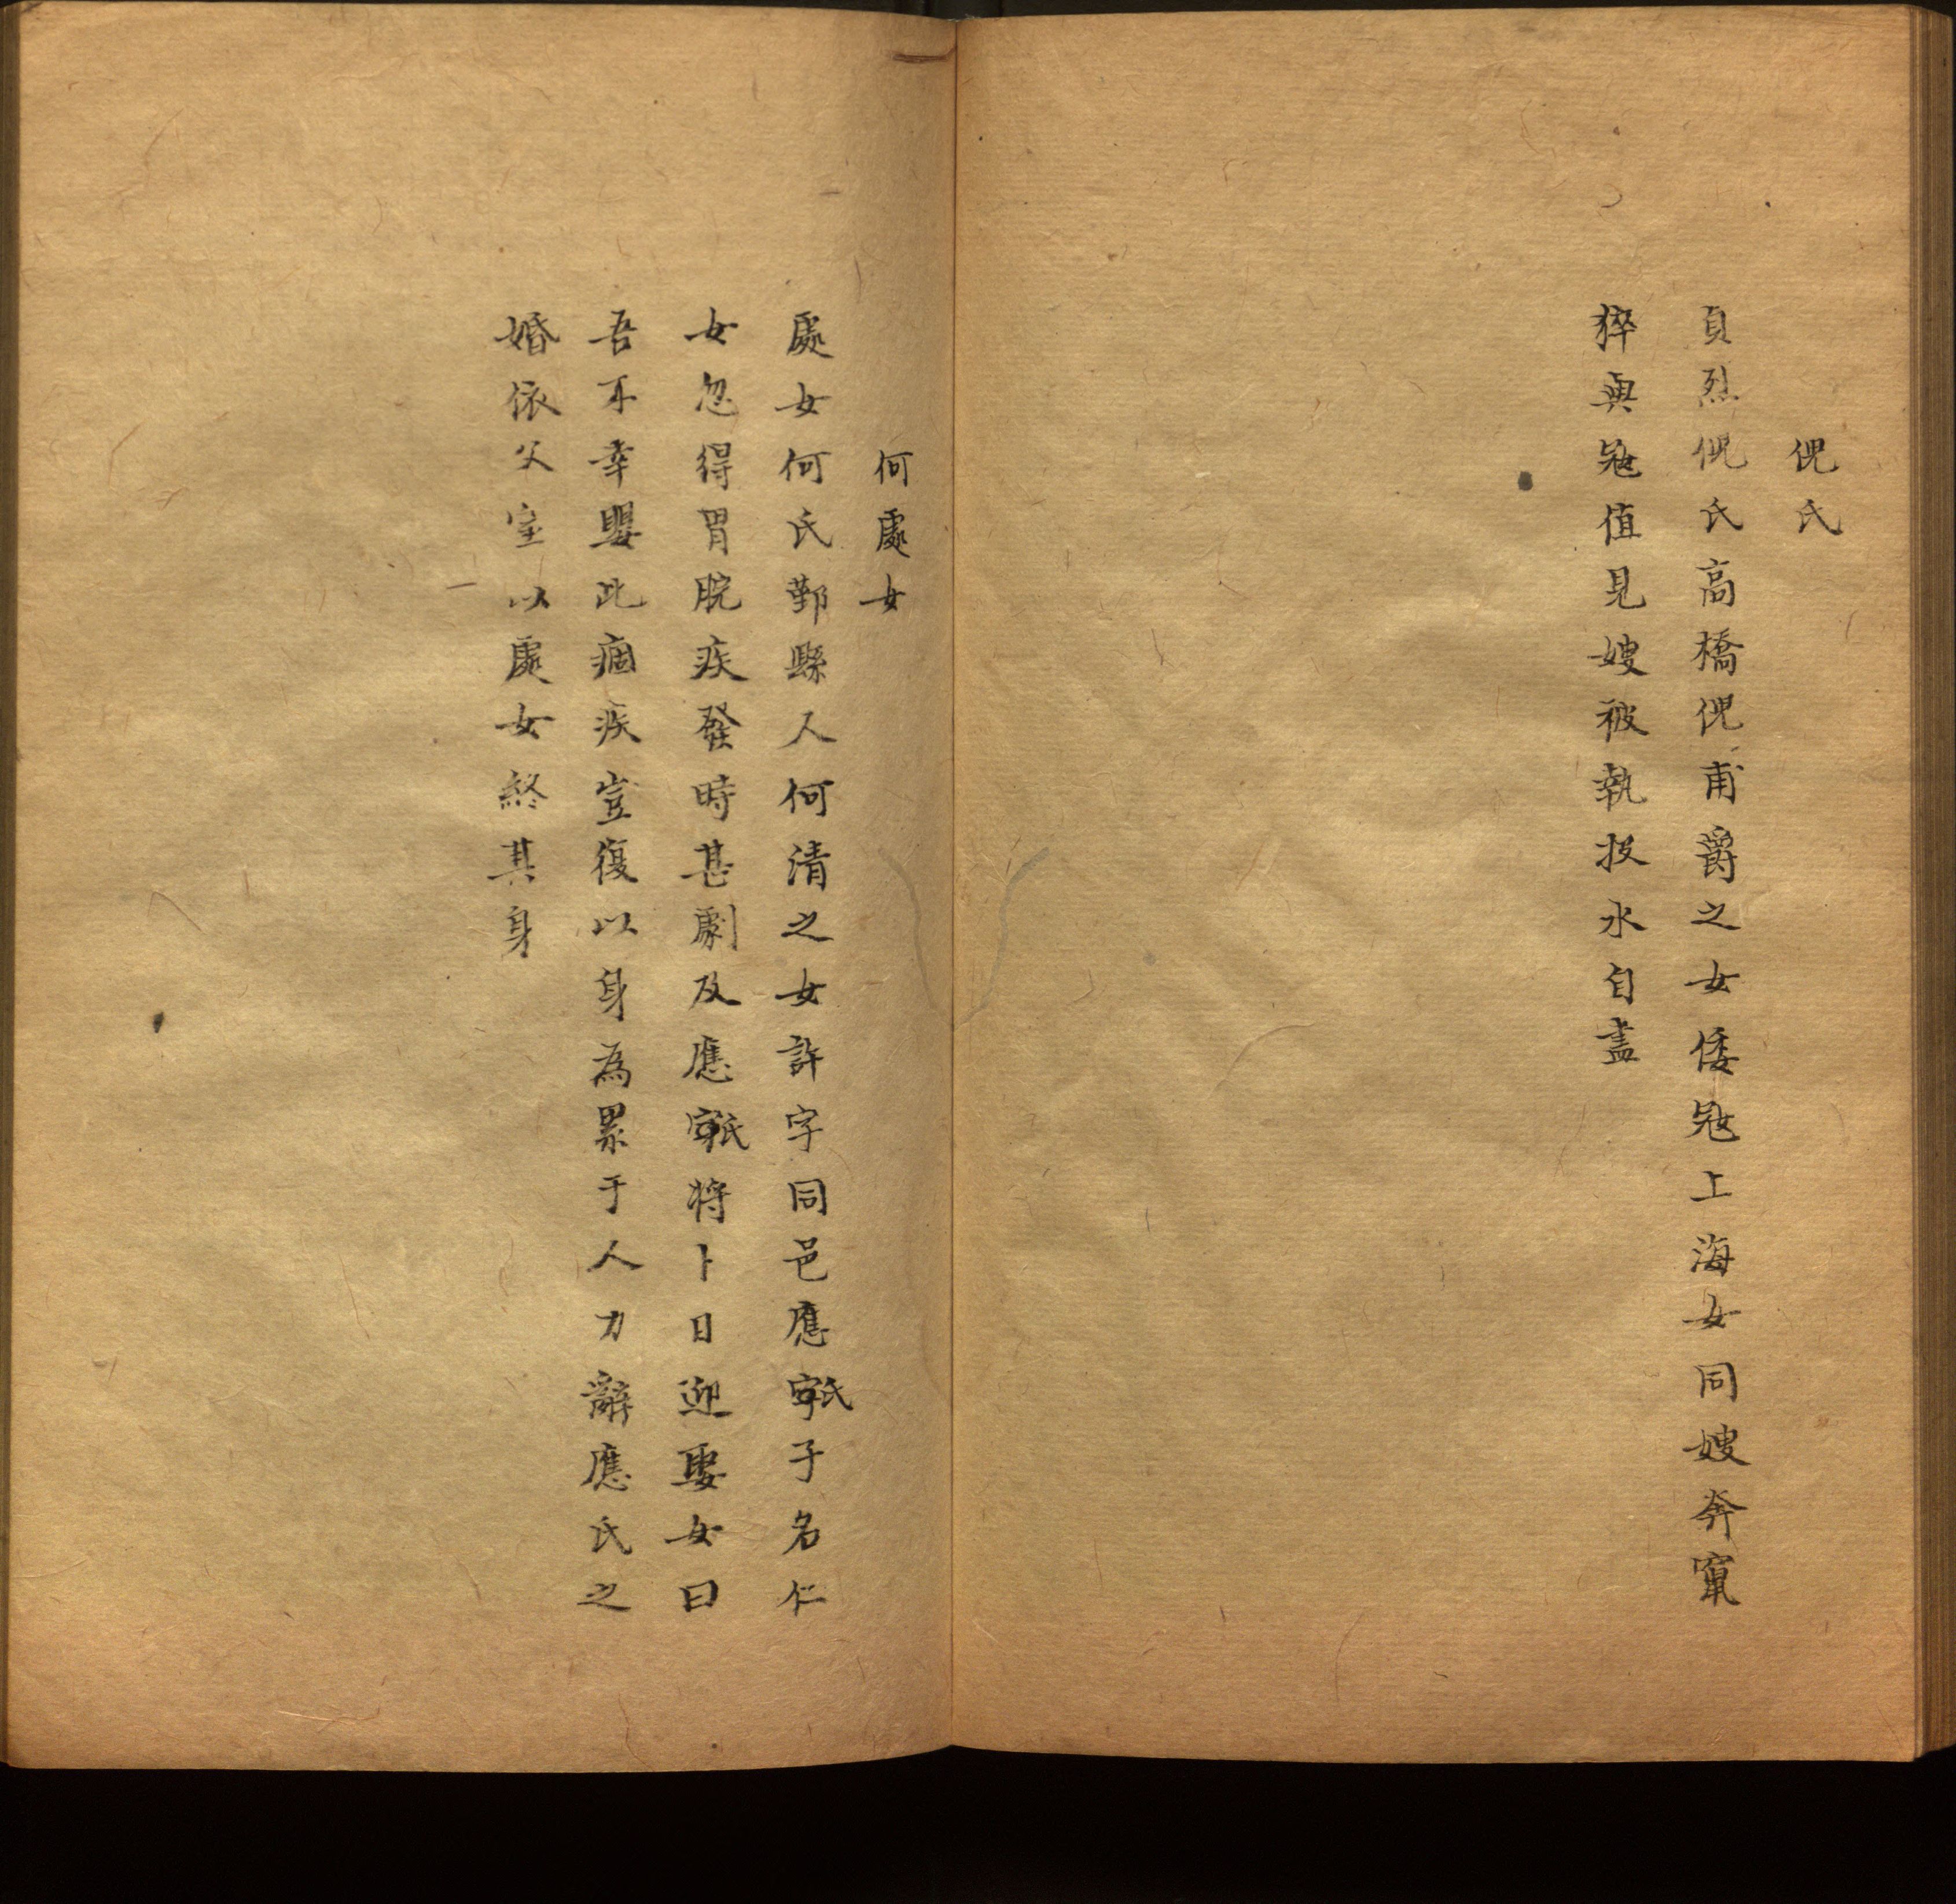 倪氏
貞烈倪氏高橋倪甫爵之女倭寇上海女同嫂奔竄
猝與寇值見嫂被執投水自盡
何處女
處女何氏鄞縣人何清之女許字同邑應字氏子名仁
女忽得胃脘疾發時甚劇及應字氏将卜日迎娶女曰
吾不幸嬰此痼疾豈復以身為累于人力辭應氏之
婚依父室以處女終其身